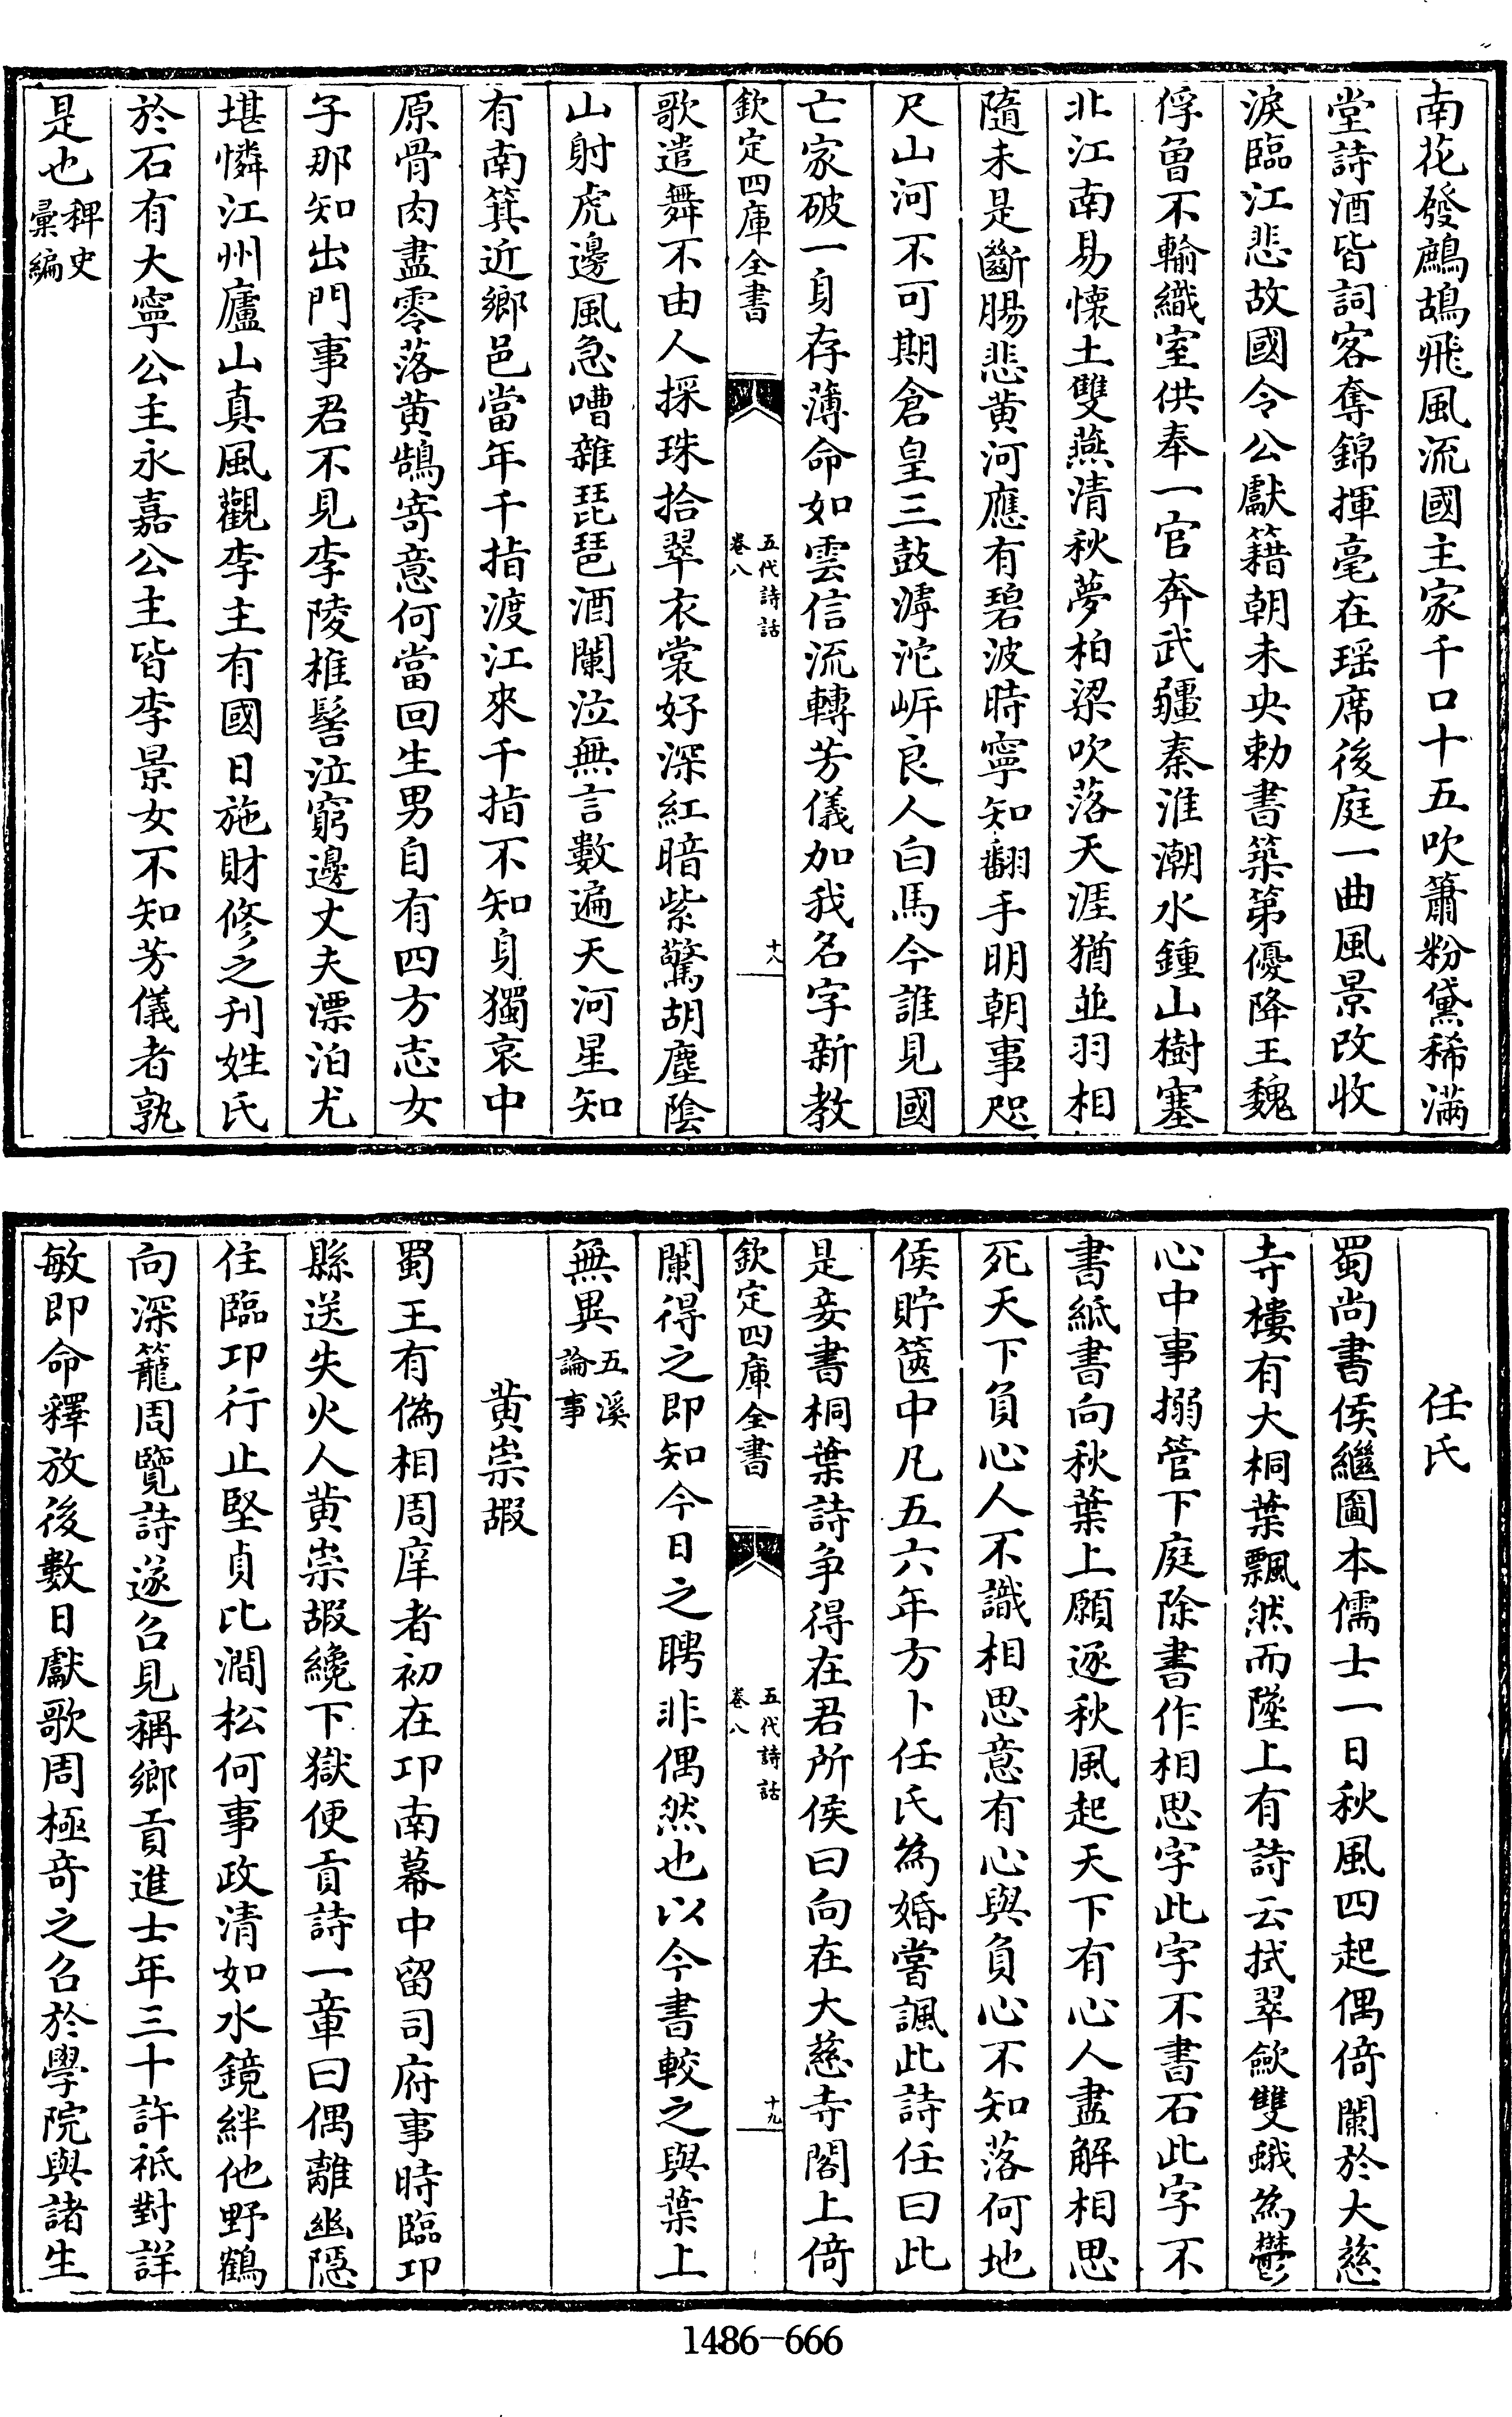 南花發鷓鴣飛風流國主家千口十五吹簫粉黛稀滿
堂詩酒皆詞客奪錦揮毫在瑶席後庭一曲風景改收
淚臨江悲故國令公獻籍朝未央勅書築第優降王魏
俘曽不輸織室供奉一官奔武疆秦淮潮水鍾山樹塞
北江南易懷土雙燕清秋夢柏梁吹落天涯猶並羽相
隨未是斷腸悲黄河應有碧波時寧知翻手明朝事咫
尺山河不可期倉皇三鼓滹沱岍良人白馬今誰見國
亡家破一身存薄命如雲信流轉芳儀加我名字新教
欽定四庫全書
五代詩話
卷八
十八
歌遣舞不由人採珠拾翠衣裳好深紅暗紫驚胡塵陰
山射虎邊風急嘈雜琵琶酒闌泣無言數遍天河星知
有南箕近鄉邑當年千指渡江來千指不知身獨哀中
原骨肉盡零落黄鵠寄意何當回生男自有四方志女
子那知出門事君不見李陵椎髻泣窮邊丈夫漂泊尤
堪憐江州廬山真風觀李主有國日施財修之刋姓氏
於石有大寧公主永嘉公主皆李景女不知芳儀者孰
是也
稗史
彙編
任氏
蜀尚書侯繼圖本儒士一日秋風四起偶倚闌於大慈
寺樓有大桐葉飄然而墜上有詩云拭翠斂雙蛾為鬱
心中事搦管下庭除書作相思字此字不書石此字不
書紙書向秋葉上願逐秋風起天下有心人盡解相思
死天下負心人不識相思意有心與負心不知落何地
侯貯篋中凡五六年方卜任氏為婚嘗諷此詩任曰此
是妾書桐葉詩争得在君所侯曰向在大慈寺閣上倚
欽定四庫全書
五代詩話
卷八
十九
闌得之即知今日之聘非偶然也以今書較之與葉上
無異
五溪
論事
黄崇嘏
蜀王有偽相周庠者初在卭南幕中留司府事時臨卭
縣送失火人黄崇嘏纔下獄便貢詩一章曰偶離幽隠
住臨卭行止堅貞比澗松何事政清如水鏡絆他野鶴
向深籠周覽詩遂召見稱鄉貢進士年三十許祗對詳
敏即命釋放後數日獻歌周極奇之召於學院與諸生
1486—666